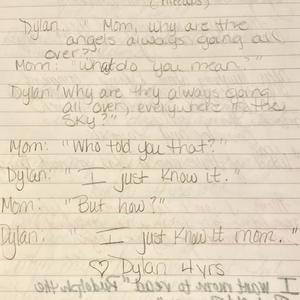 Dylan: "Mom, why are the
angels always going all
over?"
Mom: "what do you mean?"
Dylan: "Why are they always going
all over, everywhere in the
sky?"
Mom: "Who told you that?"
Dylan: "I just know it."
Mom: "But how?"
Dylan: "I just know it mom."
♡ Dylan 4 yrs